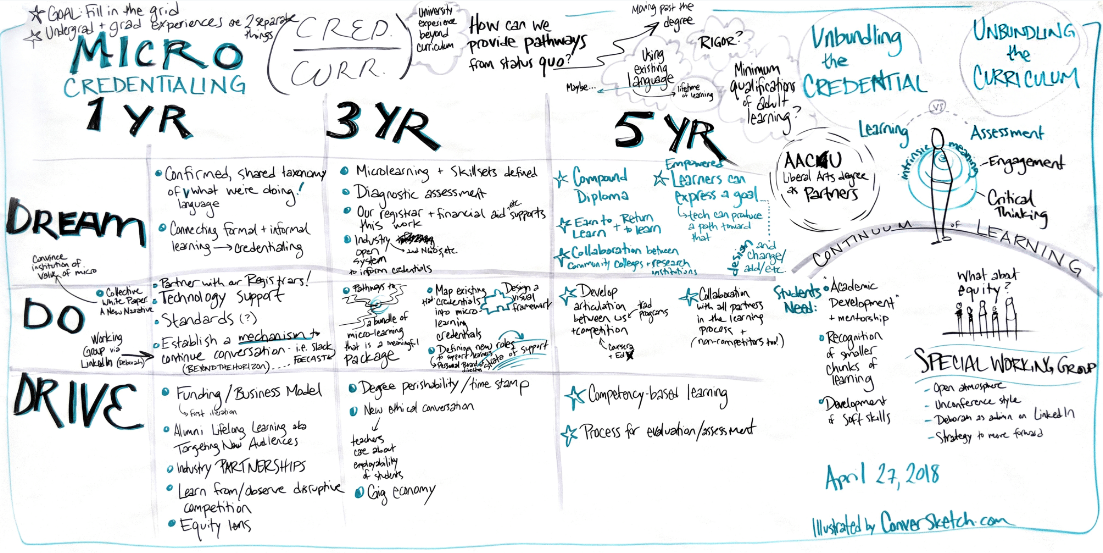 GOAL: Fill in the grid
Undergrad + grad experiences are 2 separate
things
MICRO
CREDENTIALING
CRED.
CURR.
University
experience
beyond
curriculum
How can we
provide pathways
from status quo?
Moving past the
degree
Using
existing
language
Maybe...
lifetime of learning
RIGOR?
Minimum
qualifications
of adult
learning?
Unbundling
the
CREDENTIAL
VS
UNBUNDLING
the
CURRICULUM
1 YR
3 YR
5 YR
DREAM
Confirmed, shared taxonomy
of what we're doing!
language
Connecting formal + informal
learning → credentialing
Microlearning + Skillsets defined
Diagnostic assessment
Our registrar + financial aid etc supports
this work
Industry
open
system
and NWBs, etc.
to inform
Compound
Diploma
Earn to Return
Learn to learn
Collaboration between
community colleges + research
institutions
Empowered
Learners can
express a goal
tech can produce
a path toward
that
design and
change/
add/etc.
AAC&U
Liberal Arts degree
as Partners
Learning
Assessment
intrinsic meaning
Engagement
Critical
Thinking
CONTINUUM of LEARNING
DO
Convince
institution of
value of micro
Collective
White Paper
A New Narrative
Working
Group via
LinkedIn (Deborah)
Partner with our Registrars!
Technology Support
Standards (?)
Establish a mechanism to
continue conversation - i.e. Slack,
(BEYOND THE HORIZON)....
Pathways to
a bundle of
micro-learning
that is a meaningful
package
Map existing
credentials
into micro
learning
credentials
Design a
visual
framework
Defining new roles
to support learners
Personal Board of
Directors
state of support
Develop
articulation
between us +
competition
trad
programs
Coursera
+ EdX
Collaboration
with all partners
in the learning
process +
(non-competitors too!)
Students
Need:
Academic
Development
+ mentorship
Recognition
of smaller
chunks of
learning
Development
of soft skills
What about
equity?
SPECIAL WORKING GROUP
- Open atmosphere
- Unconference style
- Deborah as admin on LinkedIn
- Strategy to move forward
DRIVE
Funding/Business Model
First iteration
Alumni Lifelong Learning
Targeting New Audiences
Industry PARTNERSHIPS
Learn from/observe disruptive
competition
Equity lens
Degree perishability/time stamp
New ethical conversation
teachers
care about
employability
of students
Gig economy
Competency-based learning
Process for evaluation/assessment
April 27, 2018
Illustrated by ConverSketch.com